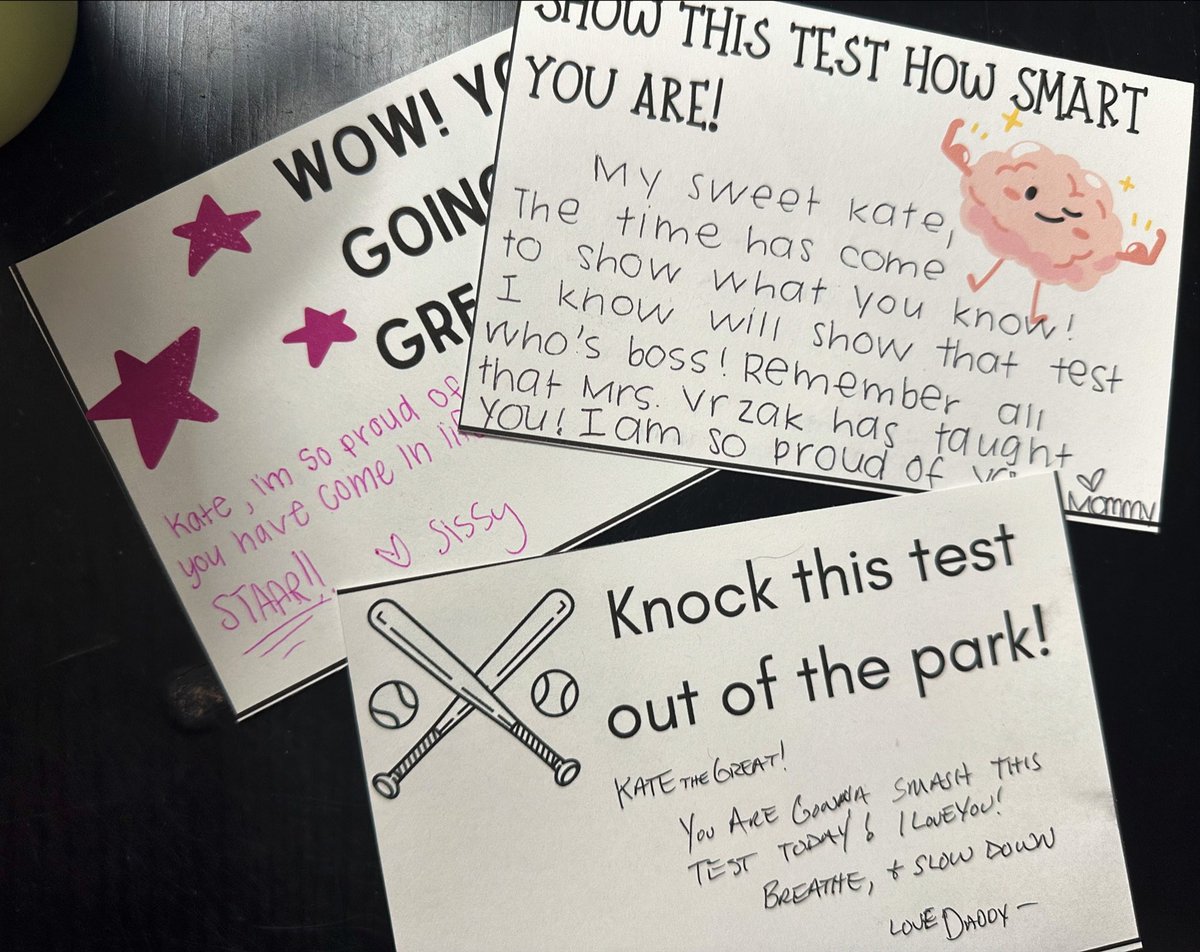 WOW!
GOING
Kate, i'm so proud of
you have come in
STAAR!!
♡ Sissy
SHOW THIS TEST HOW SMART
YOU ARE!
My sweet Kate,
The time has come
to show what you know!
I know will show that test
who's boss! Remember all
that Mrs. Vrzak has taught
you! I am so proud of
♡
Mommy
Knock this test
out of the park!
KATE THE GREAT!
YOU ARE GONNA SMASH THIS
TEST TODAY! I LOVE YOU!
BREATHE, & SLOW DOWN
LOVE DADDY —